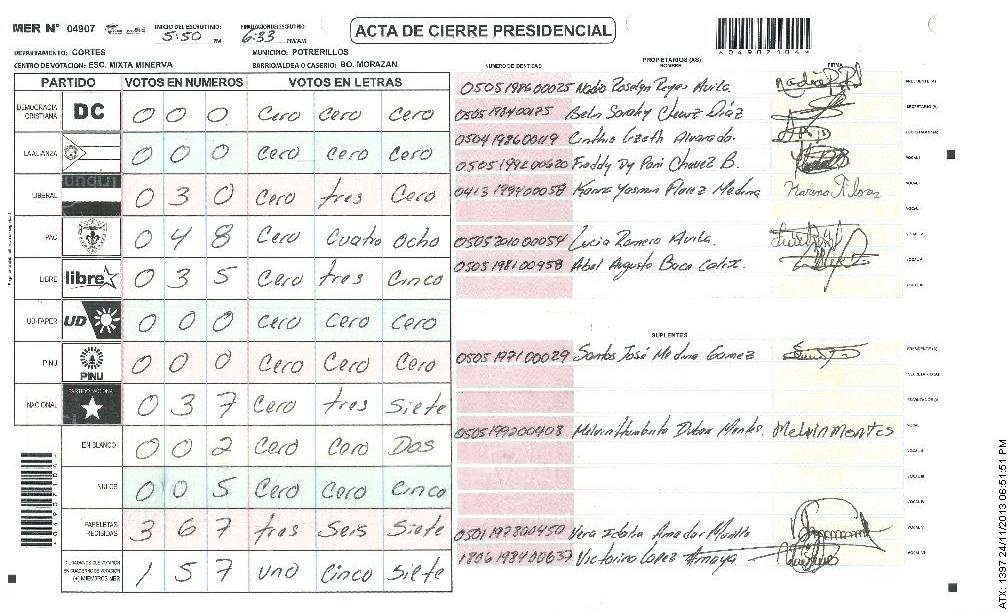 MER Nº 04907
INICIO DEL ESCRUTINIO: 5:50 PM
FINALIZACION DEL ESCRUTINIO: 6:33 PM/AM
ACTA DE CIERRE PRESIDENCIAL
DEPARTAMENTO: CORTES
MUNICIPIO: POTRERILLOS
CENTRO DE VOTACION: ESC. MIXTA MINERVA
BARRIO/ALDEA O CASERIO: BO. MORAZAN
PARTIDO VOTOS EN NUMEROS VOTOS EN LETRAS
DEMOCRACIA CRISTIANA DC 0 0 0 Cero Cero Cero
LA ALIANZA 0 0 0 Cero Cero Cero
LIBERAL 0 3 0 Cero tres Cero
PAC 0 4 8 Cero Cuatro Ocho
LIBRE libre 0 3 5 Cero tres Cinco
UD-FAPER UD 0 0 0 Cero Cero Cero
PINU PINU 0 0 0 Cero Cero Cero
NACIONAL 0 3 7 Cero tres Siete
EN BLANCO 0 0 2 Cero Cero Dos
NULOS 0 0 5 Cero Cero Cinco
PAPELETAS RECIBIDAS 3 6 7 tres Seis Siete
CIUDADANOS QUE VOTARON EN CUADERNO DE VOTACION (+) MIEMBROS MER 1 5 7 uno Cinco Siete
PROPIETARIOS (AS)
NUMERO DE IDENTIDAD NOMBRE FIRMA
0505198600025 Nadia Roselyn Reyes Avila.
Belin Sarahy Chavez Díaz
0504198600119 Cinthia Lizeth Alvarado
0505199200620 Freddy Dy Pani Chavez B.
0413199400058 Karina Yasmin Florez Medina
0505201000054 Lucia Romero Avila.
0505198100958 Abel Augusto Baca Calix.
SUPLENTES
0505197100029 Santos José Medina Gomez
0505199200408 Melvin Humberto Dubon Montes. Melvin Montes
0501197800450 Vera Idalia Amador Murillo
1806198400637 Victorino Lopez Amaya
ATX: 1397 24/11/2013 06:51:51 PM